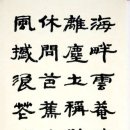 海畔雲菴
離塵土稱
休問菖蒲
風撼浪花